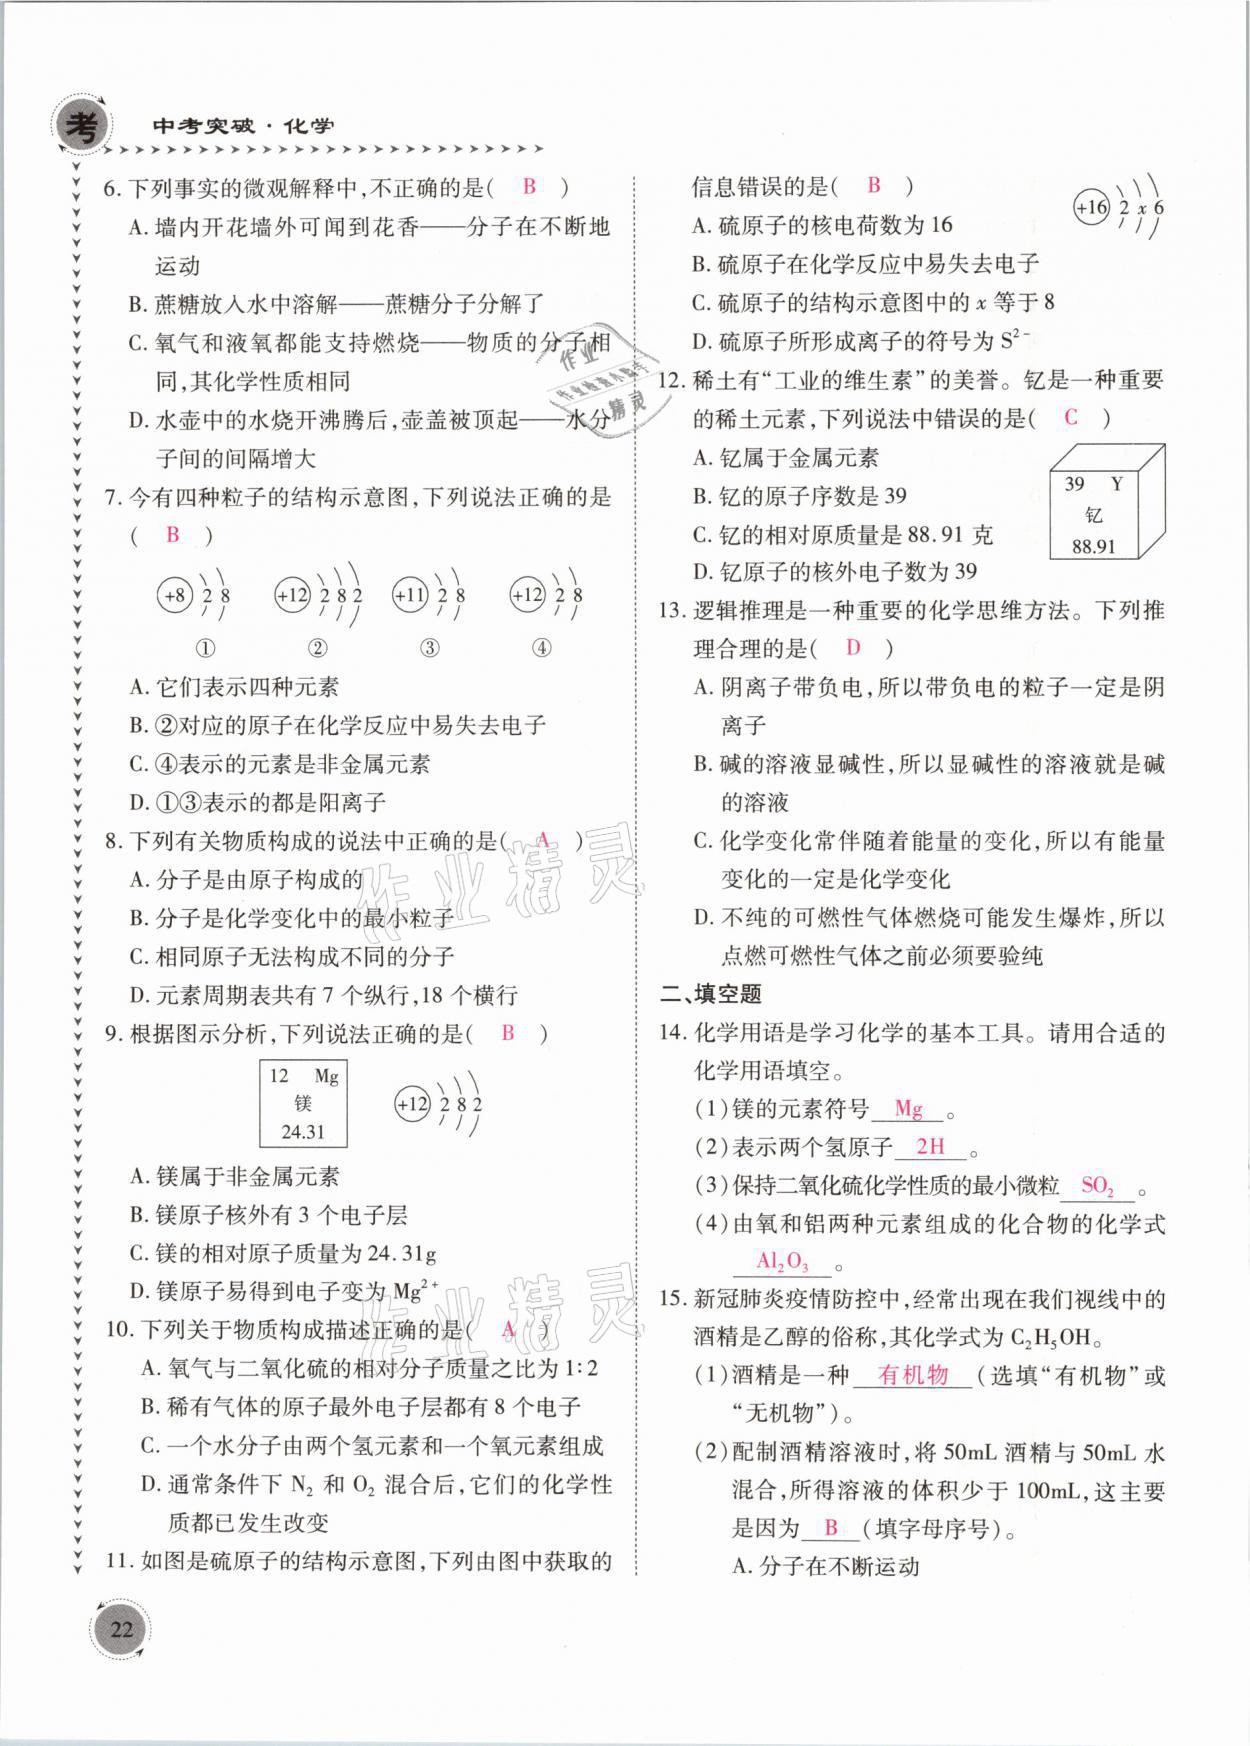 考
中考突破·化学
6. 下列事实的微观解释中,不正确的是( B )
A. 墙内开花墙外可闻到花香——分子在不断地
运动
B. 蔗糖放入水中溶解——蔗糖分子分解了
C. 氧气和液氧都能支持燃烧——物质的分子相
同,其化学性质相同
D. 水壶中的水烧开沸腾后,壶盖被顶起——水分
子间的间隔增大
7. 今有四种粒子的结构示意图,下列说法正确的是
( B )
+8 2 8 +12 2 8 2 +11 2 8 +12 2 8
① ② ③ ④
A. 它们表示四种元素
B. ②对应的原子在化学反应中易失去电子
C. ④表示的元素是非金属元素
D. ①③表示的都是阳离子
8. 下列有关物质构成的说法中正确的是( A )
A. 分子是由原子构成的
B. 分子是化学变化中的最小粒子
C. 相同原子无法构成不同的分子
D. 元素周期表共有 7 个纵行,18 个横行
9. 根据图示分析,下列说法正确的是( B )
12 Mg
镁
24.31
+12 2 8 2
A. 镁属于非金属元素
B. 镁原子核外有 3 个电子层
C. 镁的相对原子质量为 24.31g
D. 镁原子易得到电子变为 Mg²⁺
10. 下列关于物质构成描述正确的是( A )
A. 氧气与二氧化硫的相对分子质量之比为 1∶2
B. 稀有气体的原子最外电子层都有 8 个电子
C. 一个水分子由两个氢元素和一个氧元素组成
D. 通常条件下 N₂ 和 O₂ 混合后,它们的化学性
质都已发生改变
11. 如图是硫原子的结构示意图,下列由图中获取的
22
信息错误的是( B )
+16 2 x 6
A. 硫原子的核电荷数为 16
B. 硫原子在化学反应中易失去电子
C. 硫原子的结构示意图中的 x 等于 8
D. 硫原子所形成离子的符号为 S²⁻
12. 稀土有“工业的维生素”的美誉。钇是一种重要
的稀土元素,下列说法中错误的是( C )
A. 钇属于金属元素
B. 钇的原子序数是 39
C. 钇的相对原子质量是 88.91 克
D. 钇原子的核外电子数为 39
39 Y
钇
88.91
13. 逻辑推理是一种重要的化学思维方法。下列推
理合理的是( D )
A. 阴离子带负电,所以带负电的粒子一定是阴
离子
B. 碱的溶液显碱性,所以显碱性的溶液就是碱
的溶液
C. 化学变化常伴随着能量的变化,所以有能量
变化的一定是化学变化
D. 不纯的可燃性气体燃烧可能发生爆炸,所以
点燃可燃性气体之前必须要验纯
二、填空题
14. 化学用语是学习化学的基本工具。请用合适的
化学用语填空。
(1)镁的元素符号 Mg 。
(2)表示两个氢原子 2H 。
(3)保持二氧化硫化学性质的最小微粒 SO₂ 。
(4)由氧和铝两种元素组成的化合物的化学式
Al₂O₃ 。
15. 新冠肺炎疫情防控中,经常出现在我们视线中的
酒精是乙醇的俗称,其化学式为 C₂H₅OH。
(1)酒精是一种 有机物 (选填“有机物”或
“无机物”)。
(2)配制酒精溶液时,将 50mL 酒精与 50mL 水
混合,所得溶液的体积少于 100mL,这主要
是因为 B (填字母序号)。
A. 分子在不断运动
作业
作业检查小助手
精灵
作业精灵
作业精灵